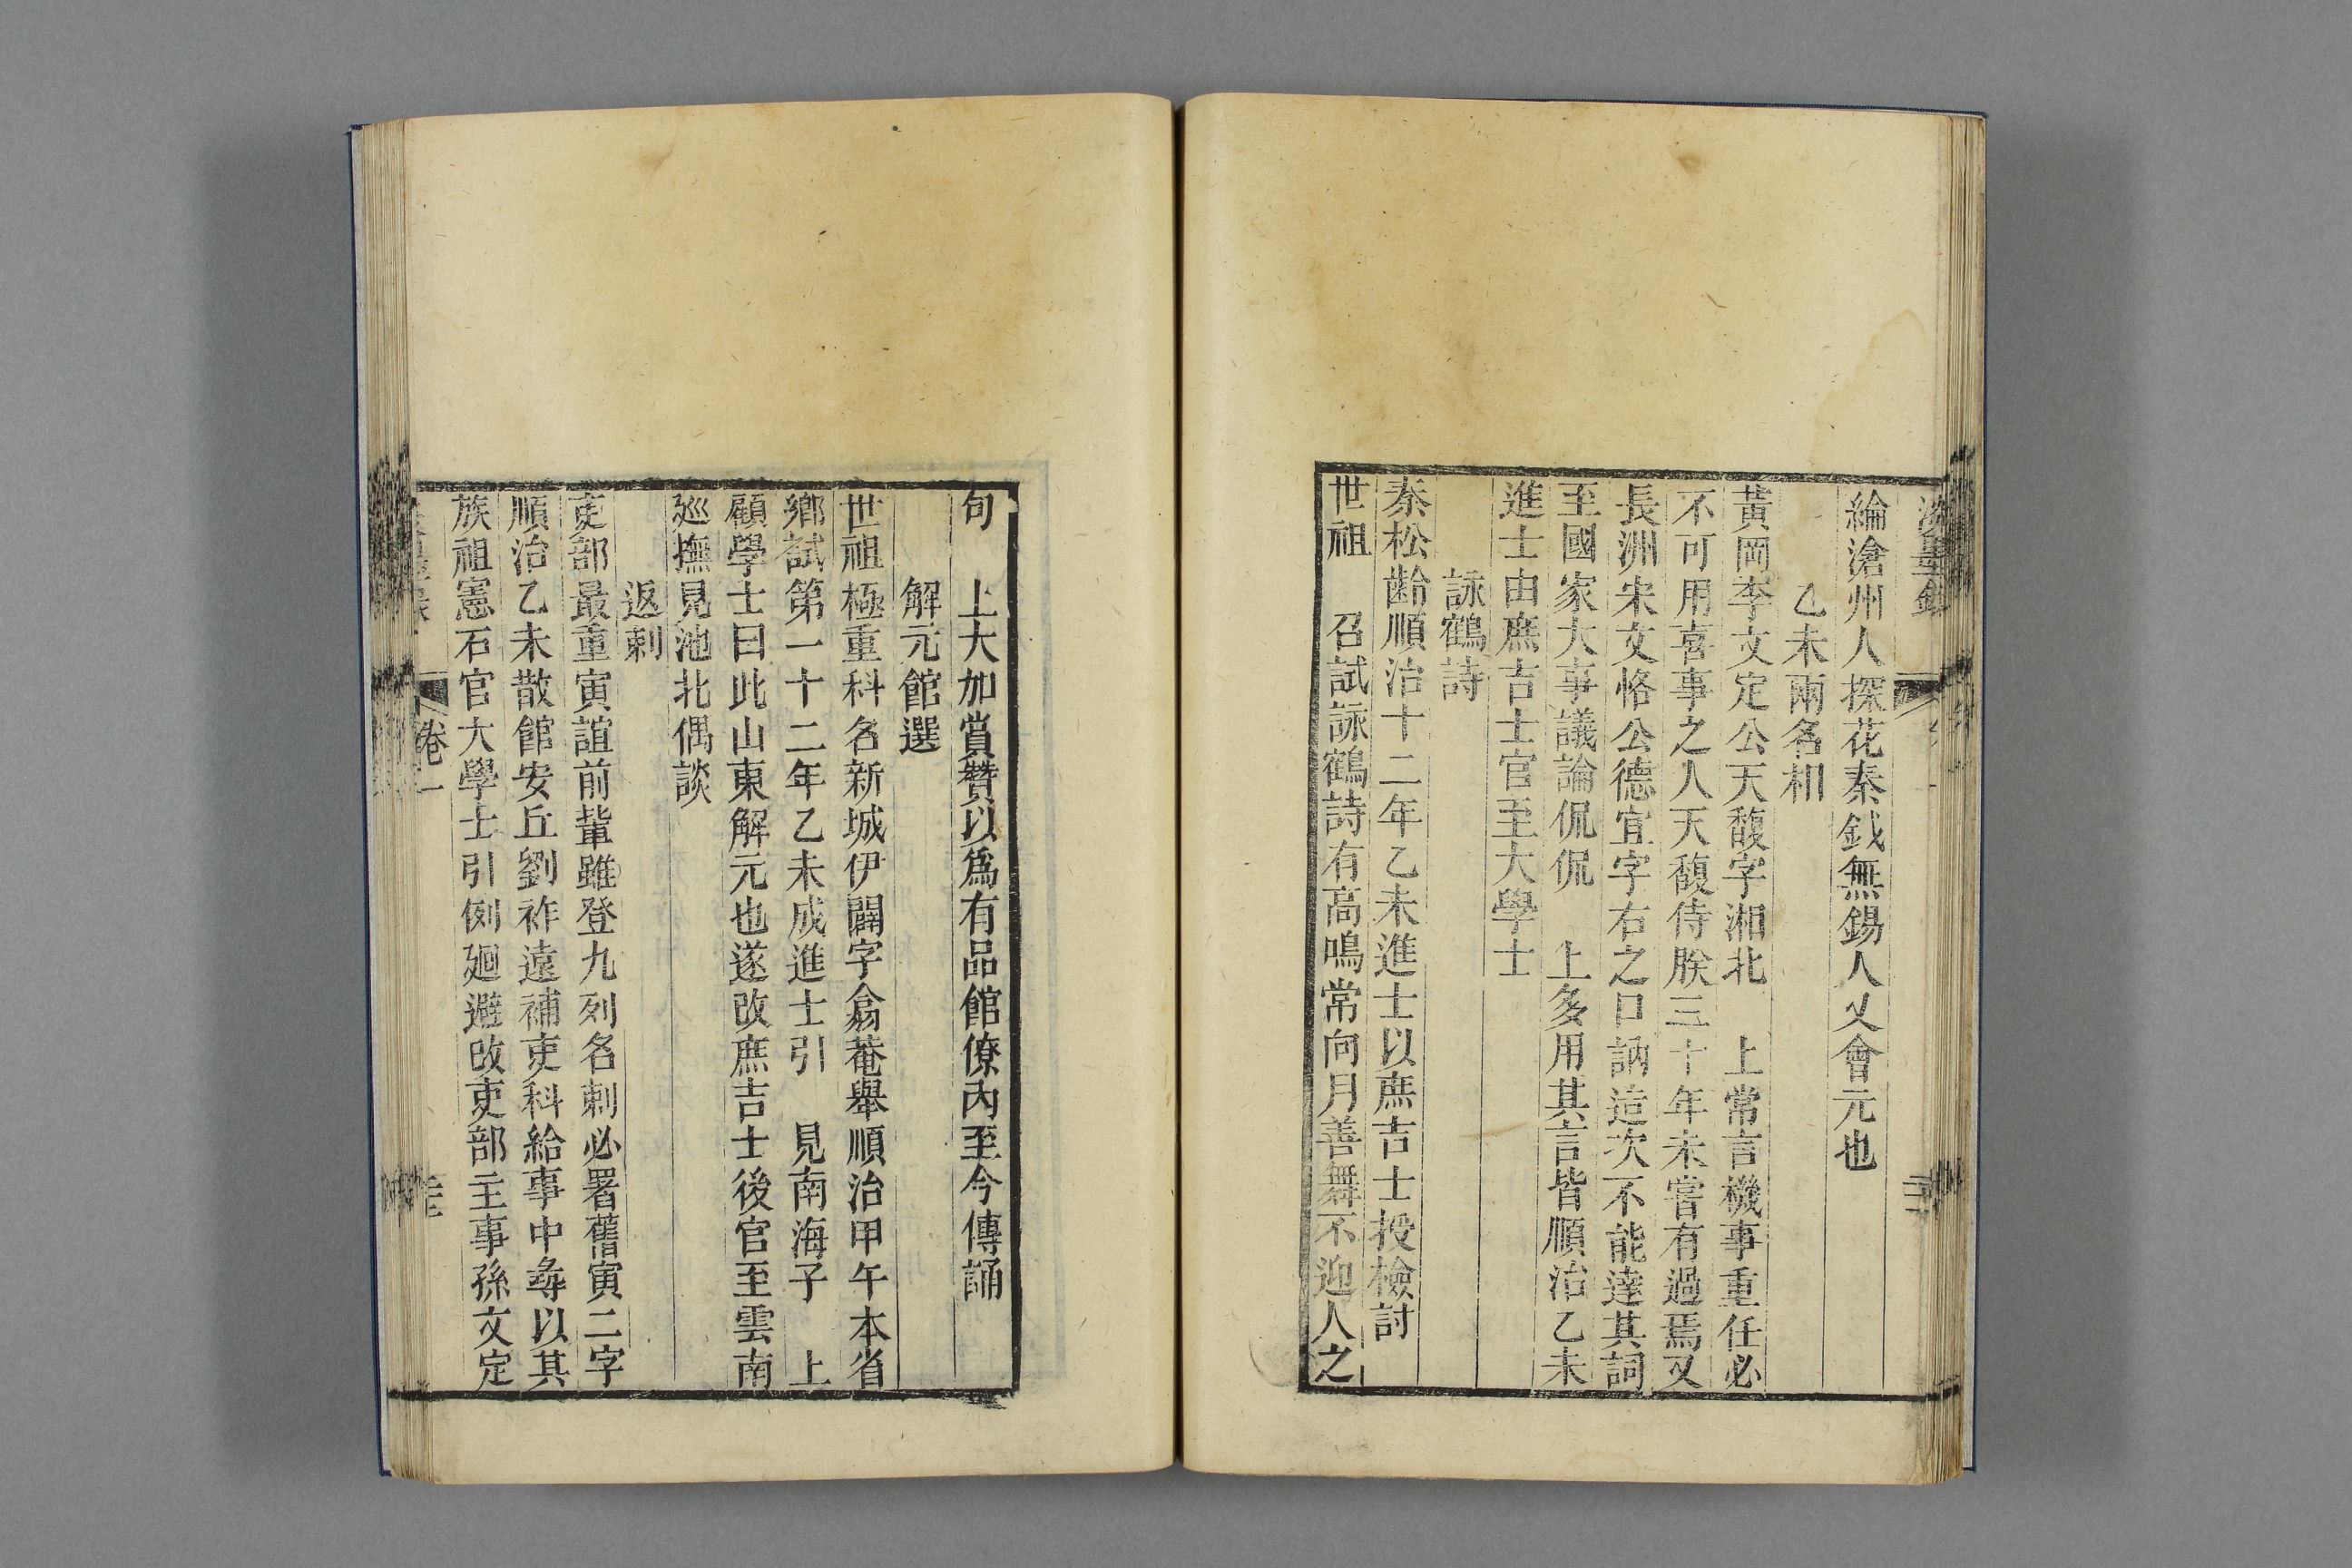 綸滄州人探花秦鉽無錫人又會元也
乙未兩名相
黃岡李文定公天馥字湘北　上常言機事重任必
不可用喜事之人天馥侍朕三十年未嘗有過焉又
長洲宋文恪公德宜字右之口訥造次不能達其詞
至國家大事議論侃侃　上多用其言皆順治乙未
進士由庶吉士官至大學士
詠鶴詩
秦松齡順治十二年乙未進士以庶吉士授檢討
世祖　召試詠鶴詩有高鳴常向月善舞不迎人之
句　上大加賞贊以爲有品館僚內至今傳誦
解元館選
世祖極重科名新城伊闢字翕菴舉順治甲午本省
鄉試第一十二年乙未成進士引　見南海子　上
顧學士曰此山東解元也遂改庶吉士後官至雲南
巡撫見池北偶談
返刺
吏部最重寅誼前輩雖登九列名刺必署舊寅二字
順治乙未散館安丘劉祚遠補吏科給事中彝以其
族祖憲石官大學士引例廻避改吏部主事孫文定
卷一